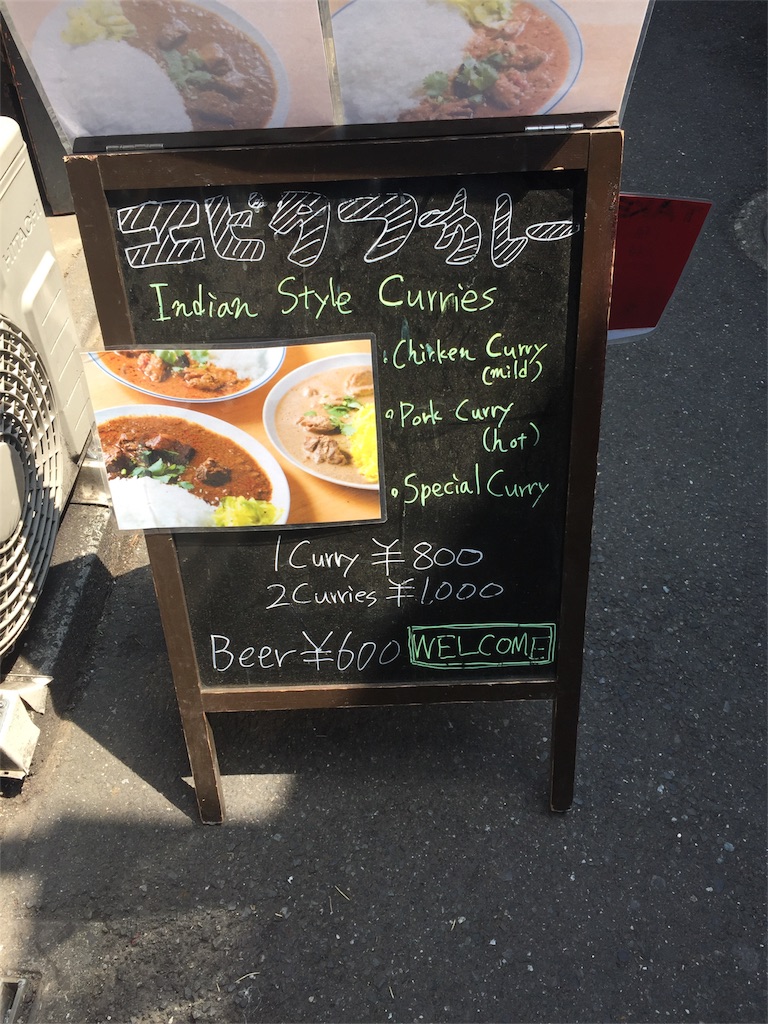 エピタフカレー
Indian Style Curries
・Chicken Curry
(mild)
・Pork Curry
(hot)
・Special Curry
1 Curry ¥800
2 Curries ¥1,000
Beer ¥600 WELCOME
HITACHI